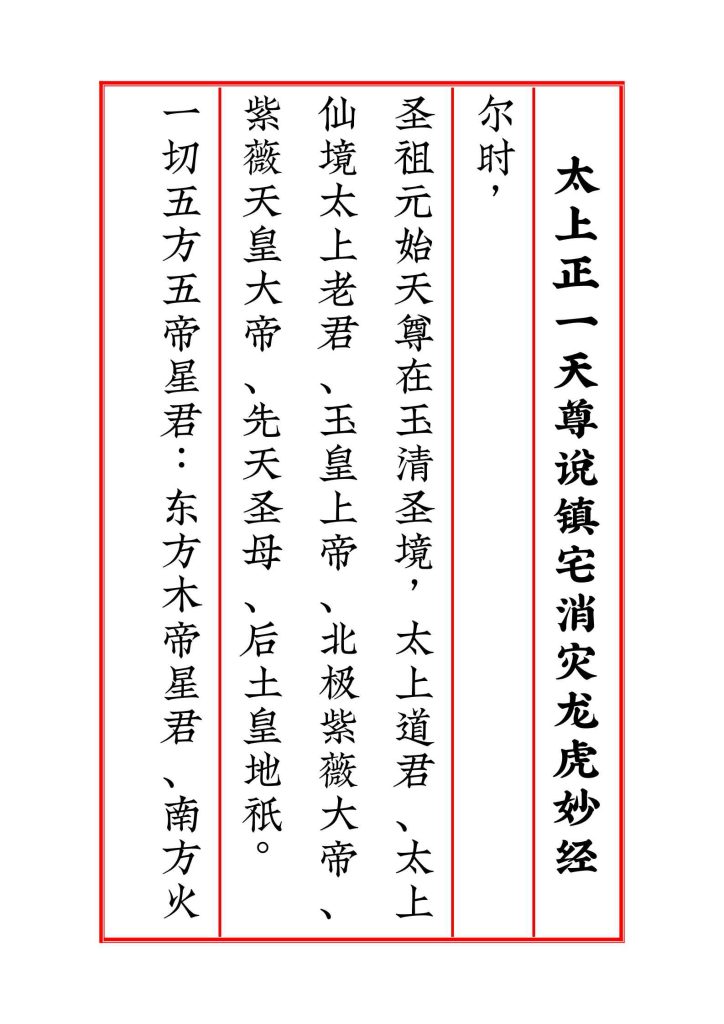 太上正一天尊说镇宅消灾龙虎妙经
尔时，
圣祖元始天尊在玉清圣境，太上道君、太上
仙境太上老君、玉皇上帝、北极紫薇大帝、
紫薇天皇大帝、先天圣母、后土皇地祇。
一切五方五帝星君：东方木帝星君、南方火